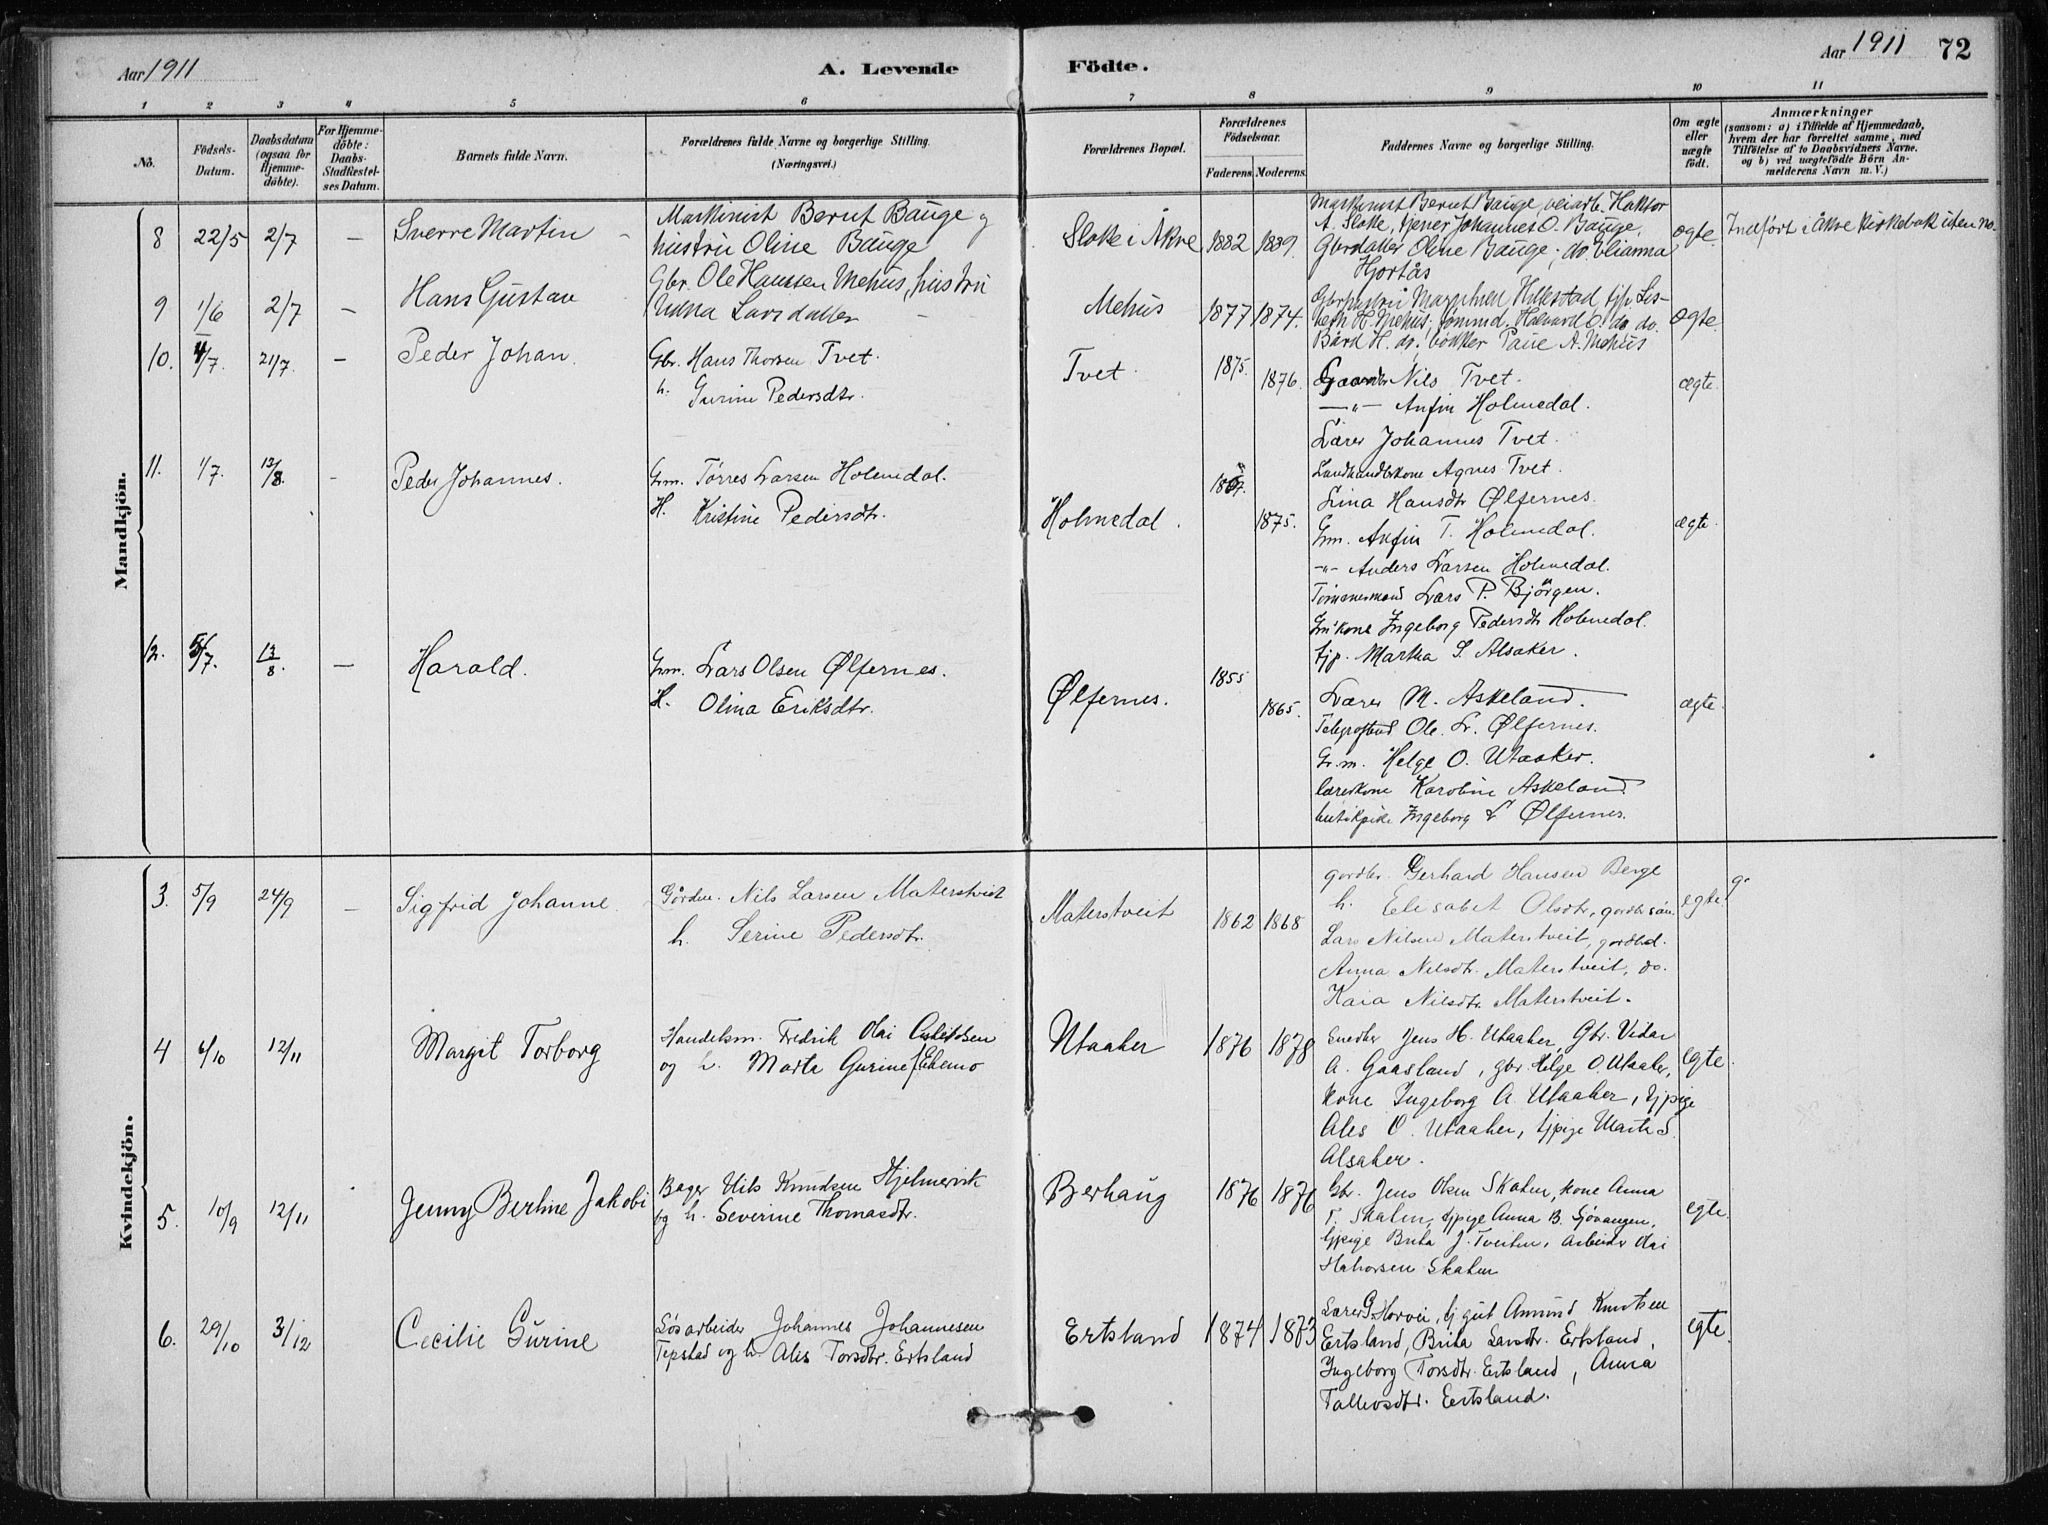 Aar 1911
A. Levende Födte.
Aar 1911 72
1 2 3 4 5 6 7 8 9 10 11
No.
Födsels-Datum.
Daabsdatum (ogsaa for Hjemmedöbte).
For Hjemmedöbte: Daabs-Stadfæstelses Datum.
Barnets fulde Navn.
Forældrenes fulde Navne og borgerlige Stilling. (Næringsvei.)
Forældrenes Bopæl.
Forældrenes Födselsaar.
Faderens. Moderens.
Faddernes Navne og borgerlige Stilling.
Om ægte eller uægte födt.
Anmærkninger
(saasom: a) i Tilfælde af Hjemmedaab, hvem der har forrettet samme, med Tilföielse af to Daabsvidners Navne. og b) ved uægtefödte Börn Anmelderens Navn m. V.)
Mandkjön.
8 22/5 2/7 — Sverre Martin
Maskinist Bernt Bauge og
hustru Oline Bauge
Sloke i Åkre 1882 1889.
Maskinist Bernt Bauge, veiarb. Haktor
A. Sloke, tjener Johannes O. Bauge,
Gbrdatter Oline Bauge, do. Elianna
Hjortås
ægte. Indført i Åkre kirkebok uten no.
9 1/6 2/7 — Hans Gustav
Gbr. Ole Hanssen Mehus, hustru
Anna Larsdatter
Mehus 1877 1874.
Gbrhustru Hillestad tjp Lis-
beth H. Mehus, tømmd. Halvard O. do do.
Bård H. do, bødker A. Mehus
ægte.
10. 4/7. 21/7. — Peder Johan
Gbr. Hans Thorsen Tvet.
h. Gurine Pedersdtr.
Tvet. 1875. 1876.
Gaardbr Nils Tvet.
—"— Anfin Holmedal.
Lærer Johannes Tvet.
Landhandlskone Agnes Tvet.
Lina Hansdtr Ølfernes.
ægte.
11. 1/7. 13/8. - Peder Johannes.
Grm. Tørres Larsen Holmedal.
H. Kristine Pedersdtr.
Holmedal. 1867. 1875.
Grm. Anfin T. Holmedal.
-"- Anders Larsen Holmedal.
Tømmermand Lars P. Bjørgen.
Gr.kone Ingeborg Pedersdtr Holmedal.
tjp. Martha S. Alsaker.
ægte.
12. 5/7. 13/8. — Harald.
Grm. Lars Olsen Ølfernes.
H. Olina Eriksdtr.
Ølfernes. 1855 1865.
Lærer M. Askeland.
Telegrafbud Ole L. Ølfernes.
Gr.m. Helge O. Utaaker.
lærerkone Karoline Askeland
butikpike Ingeborg L Ølfernes.
ægte.
Kvindekjön.
3. 5/9 24/9 — Sigfrid Johanne
Gårdm. Nils Larsen Materstveit
h. Serine Pedersdtr.
Materstveit 1862 1868
gardbr. Gerhard Hansen Berge
h. Elisabet Olsdtr, gardbr sön
Lars Nilsen Materstveit, gardbd.
Anna Nilsdtr. Materstveit, do.
Kaia Nilsdtr Materstveit.
egte
4 6/10 12/11 Margit Torborg
Handelsm. Fredrik Olai
og h. Marta Gurine
Utaaker 1876 1878
Jens H. Utaaker, Gbr. Vidar
A. Gaasland, gbr. Helge O. Utaaker,
kone Ingeborg A. Utaaker, tjpige
Ales O. Utaaker, tjpige Marta S.
Alsaker.
egte.
5. 10/9 12/11 Jenny Berline Jakobi
Bager Nils Knudsen Hjelmervik
og h. Severine Thomasdtr.
Berhaug 1876 1876
Gbr. Jens Olsen Skaten, kone Anna
T. Skaten, tjpige Anna B. Sjövangen,
tjpige Brita J. Tveiten, Arbeider Olai
Halvorsen Skaten
egte.
6. 29/10 3/12 Cecilie Gurine
Søsarbeider Johannes Johannesen
Tepstad og h. Ales Torsdtr. Ertsland
Ertsland 1874 1873
Lærer G Horvei, tj gut Amund Knutsen
Ertsland, Brita Larsdtr. Ertsland,
Ingeborg Torsdtr. Ertsland, Anna
Tallevsdtr. Ertsland.
egte.